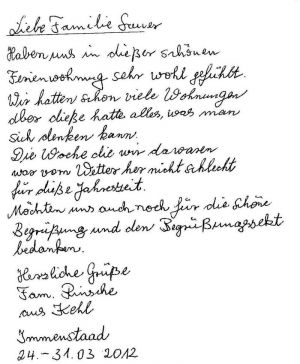 Liebe Familie Sauer
Haben uns in dießer schönen
Ferienwohnung sehr wohl gefühlt.
Wir hatten schon viele Wohnungen
aber dieße hatte alles, was man
sich denken kann.
Die Woche die wir da waren
war vom Wetter her nicht schlecht
für dieße Jahreszeit.
Möchten uns auch noch für die schöne
Begrüßung und den Begrüßungssekt
bedanken.
Herzliche Grüße
Fam.
aus Kehl
Immenstaad
24.-31.03 2012